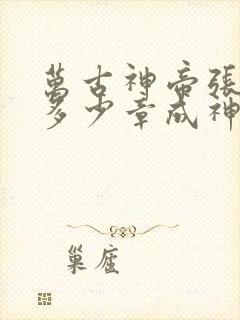 萬古神帝張
多少章成神
巢座